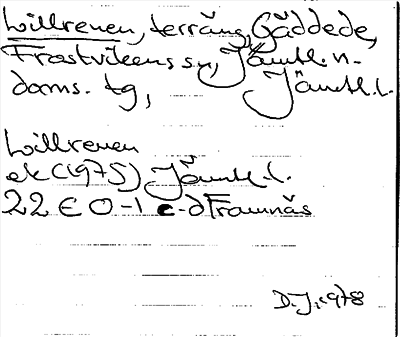 Lillrenen, terräng, Gäddede,
Frostvikens sn, Jämtl. n.
doms. tg, Jämtl. l.
Lillrenen
ek (1975) Jämtl. l.
22 E 0-1 c-d Framnäs
D.J. 1978